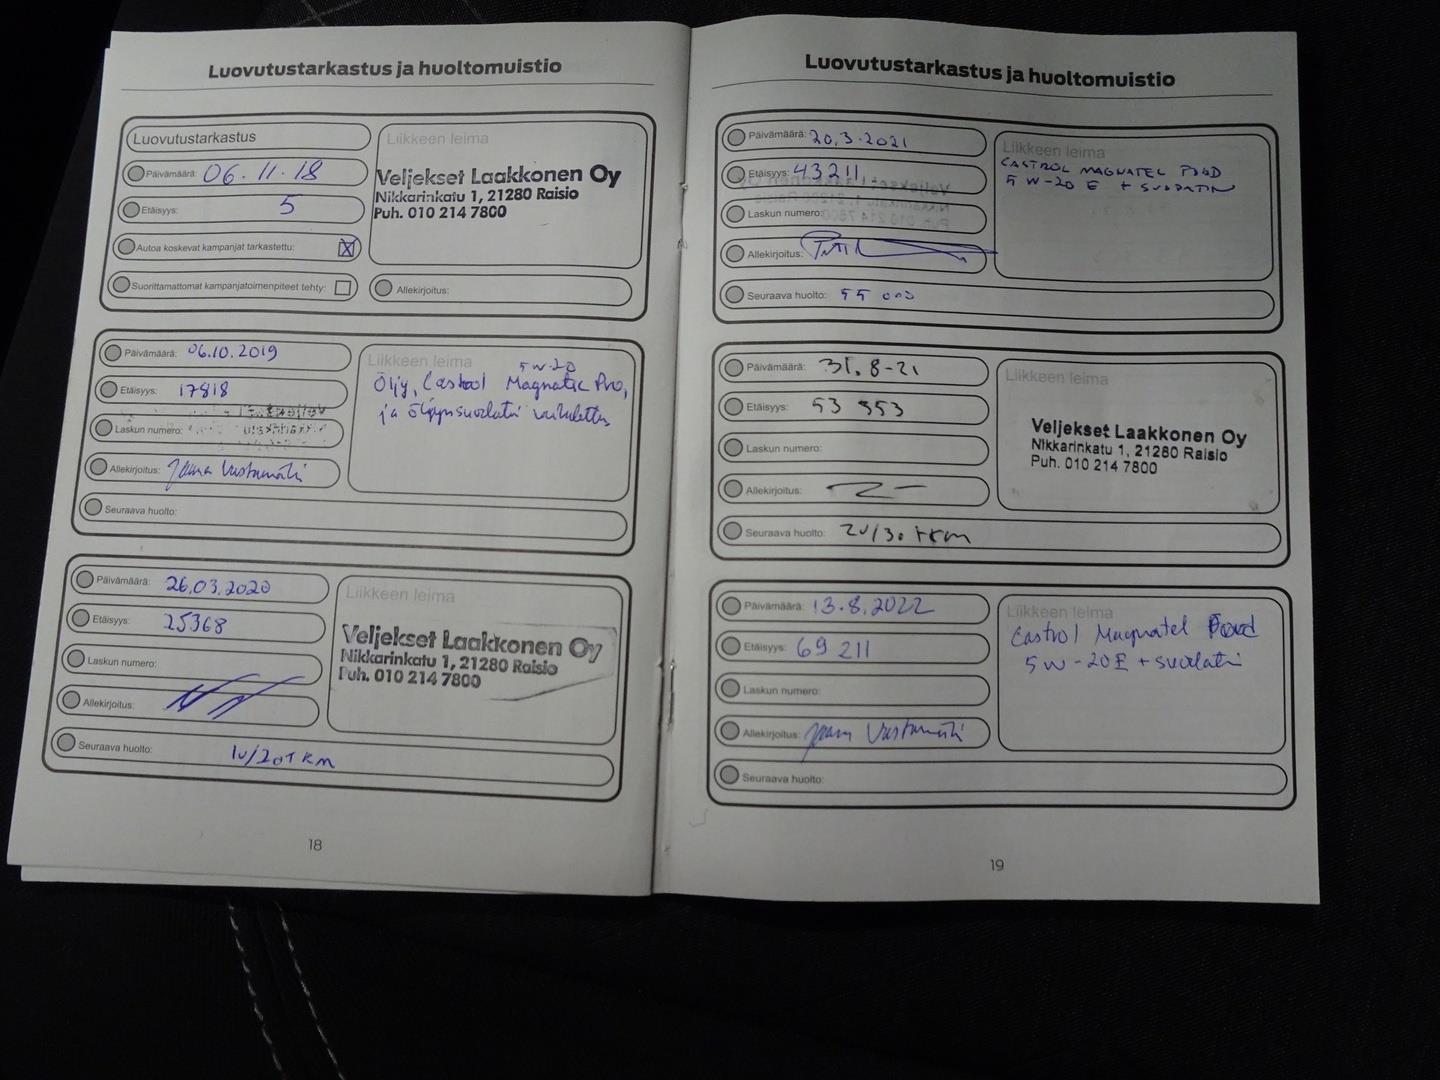 Luovutustarkastus ja huoltomuistio
Luovutustarkastus
Päivämäärä: 06.11.18
Etäisyys: 5
Autoa koskevat kampanjat tarkastettu: X
Suorittamattomat kampanjatoimenpiteet tehty:
Liikkeen leima
Veljekset Laakkonen Oy
Nikkarinkatu 1, 21280 Raisio
Puh. 010 214 7800
Allekirjoitus:
Päivämäärä: 06.10.2019
Etäisyys: 17818
Laskun numero:
Allekirjoitus: Jaana
Seuraava huolto:
Liikkeen leima
5W-20
Öljy, Castrol Magnatec Pro,
ja öljynsuodatin vaihdettu
Päivämäärä: 26.03.2020
Etäisyys: 25368
Laskun numero:
Allekirjoitus:
Seuraava huolto: 1v/20tkm
Liikkeen leima
Veljekset Laakkonen Oy
Nikkarinkatu 1, 21280 Raisio
Puh. 010 214 7800
18
Luovutustarkastus ja huoltomuistio
Päivämäärä: 20.3.2021
Etäisyys: 43211
Laskun numero:
Allekirjoitus:
Seuraava huolto: 55 000
Liikkeen leima
CASTROL MAGNATEL FORD
5W-20 E + SUODATIN
Päivämäärä: 31.8-21
Etäisyys: 53 353
Laskun numero:
Allekirjoitus:
Seuraava huolto: 2v/30tkm
Liikkeen leima
Veljekset Laakkonen Oy
Nikkarinkatu 1, 21280 Raisio
Puh. 010 214 7800
Päivämäärä: 13.8.2022
Etäisyys: 69 211
Laskun numero:
Allekirjoitus: Jaana
Seuraava huolto:
Liikkeen leima
Castrol Magnatel Ford
5W-20E + suodatin
19